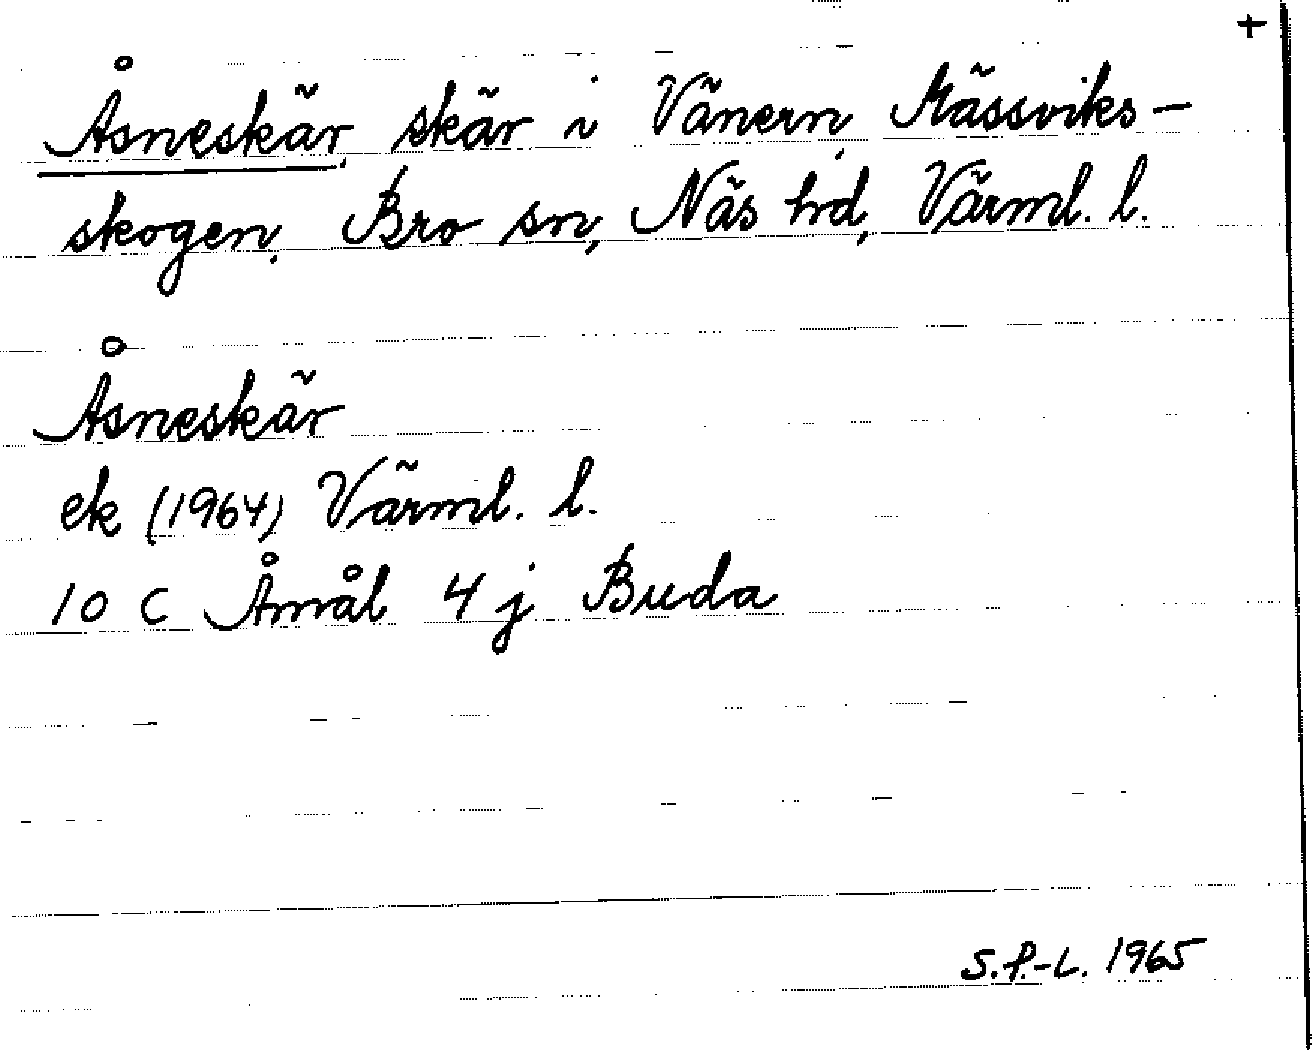 +
Åsneskär, skär i Vänern, Mässviks-
skogen, Bro sn, Näs hd, Värml. l.
Åsneskär
ek (1964) Värml. l.
10 C Åmål 4 j Buda
S.P.-L. 1965